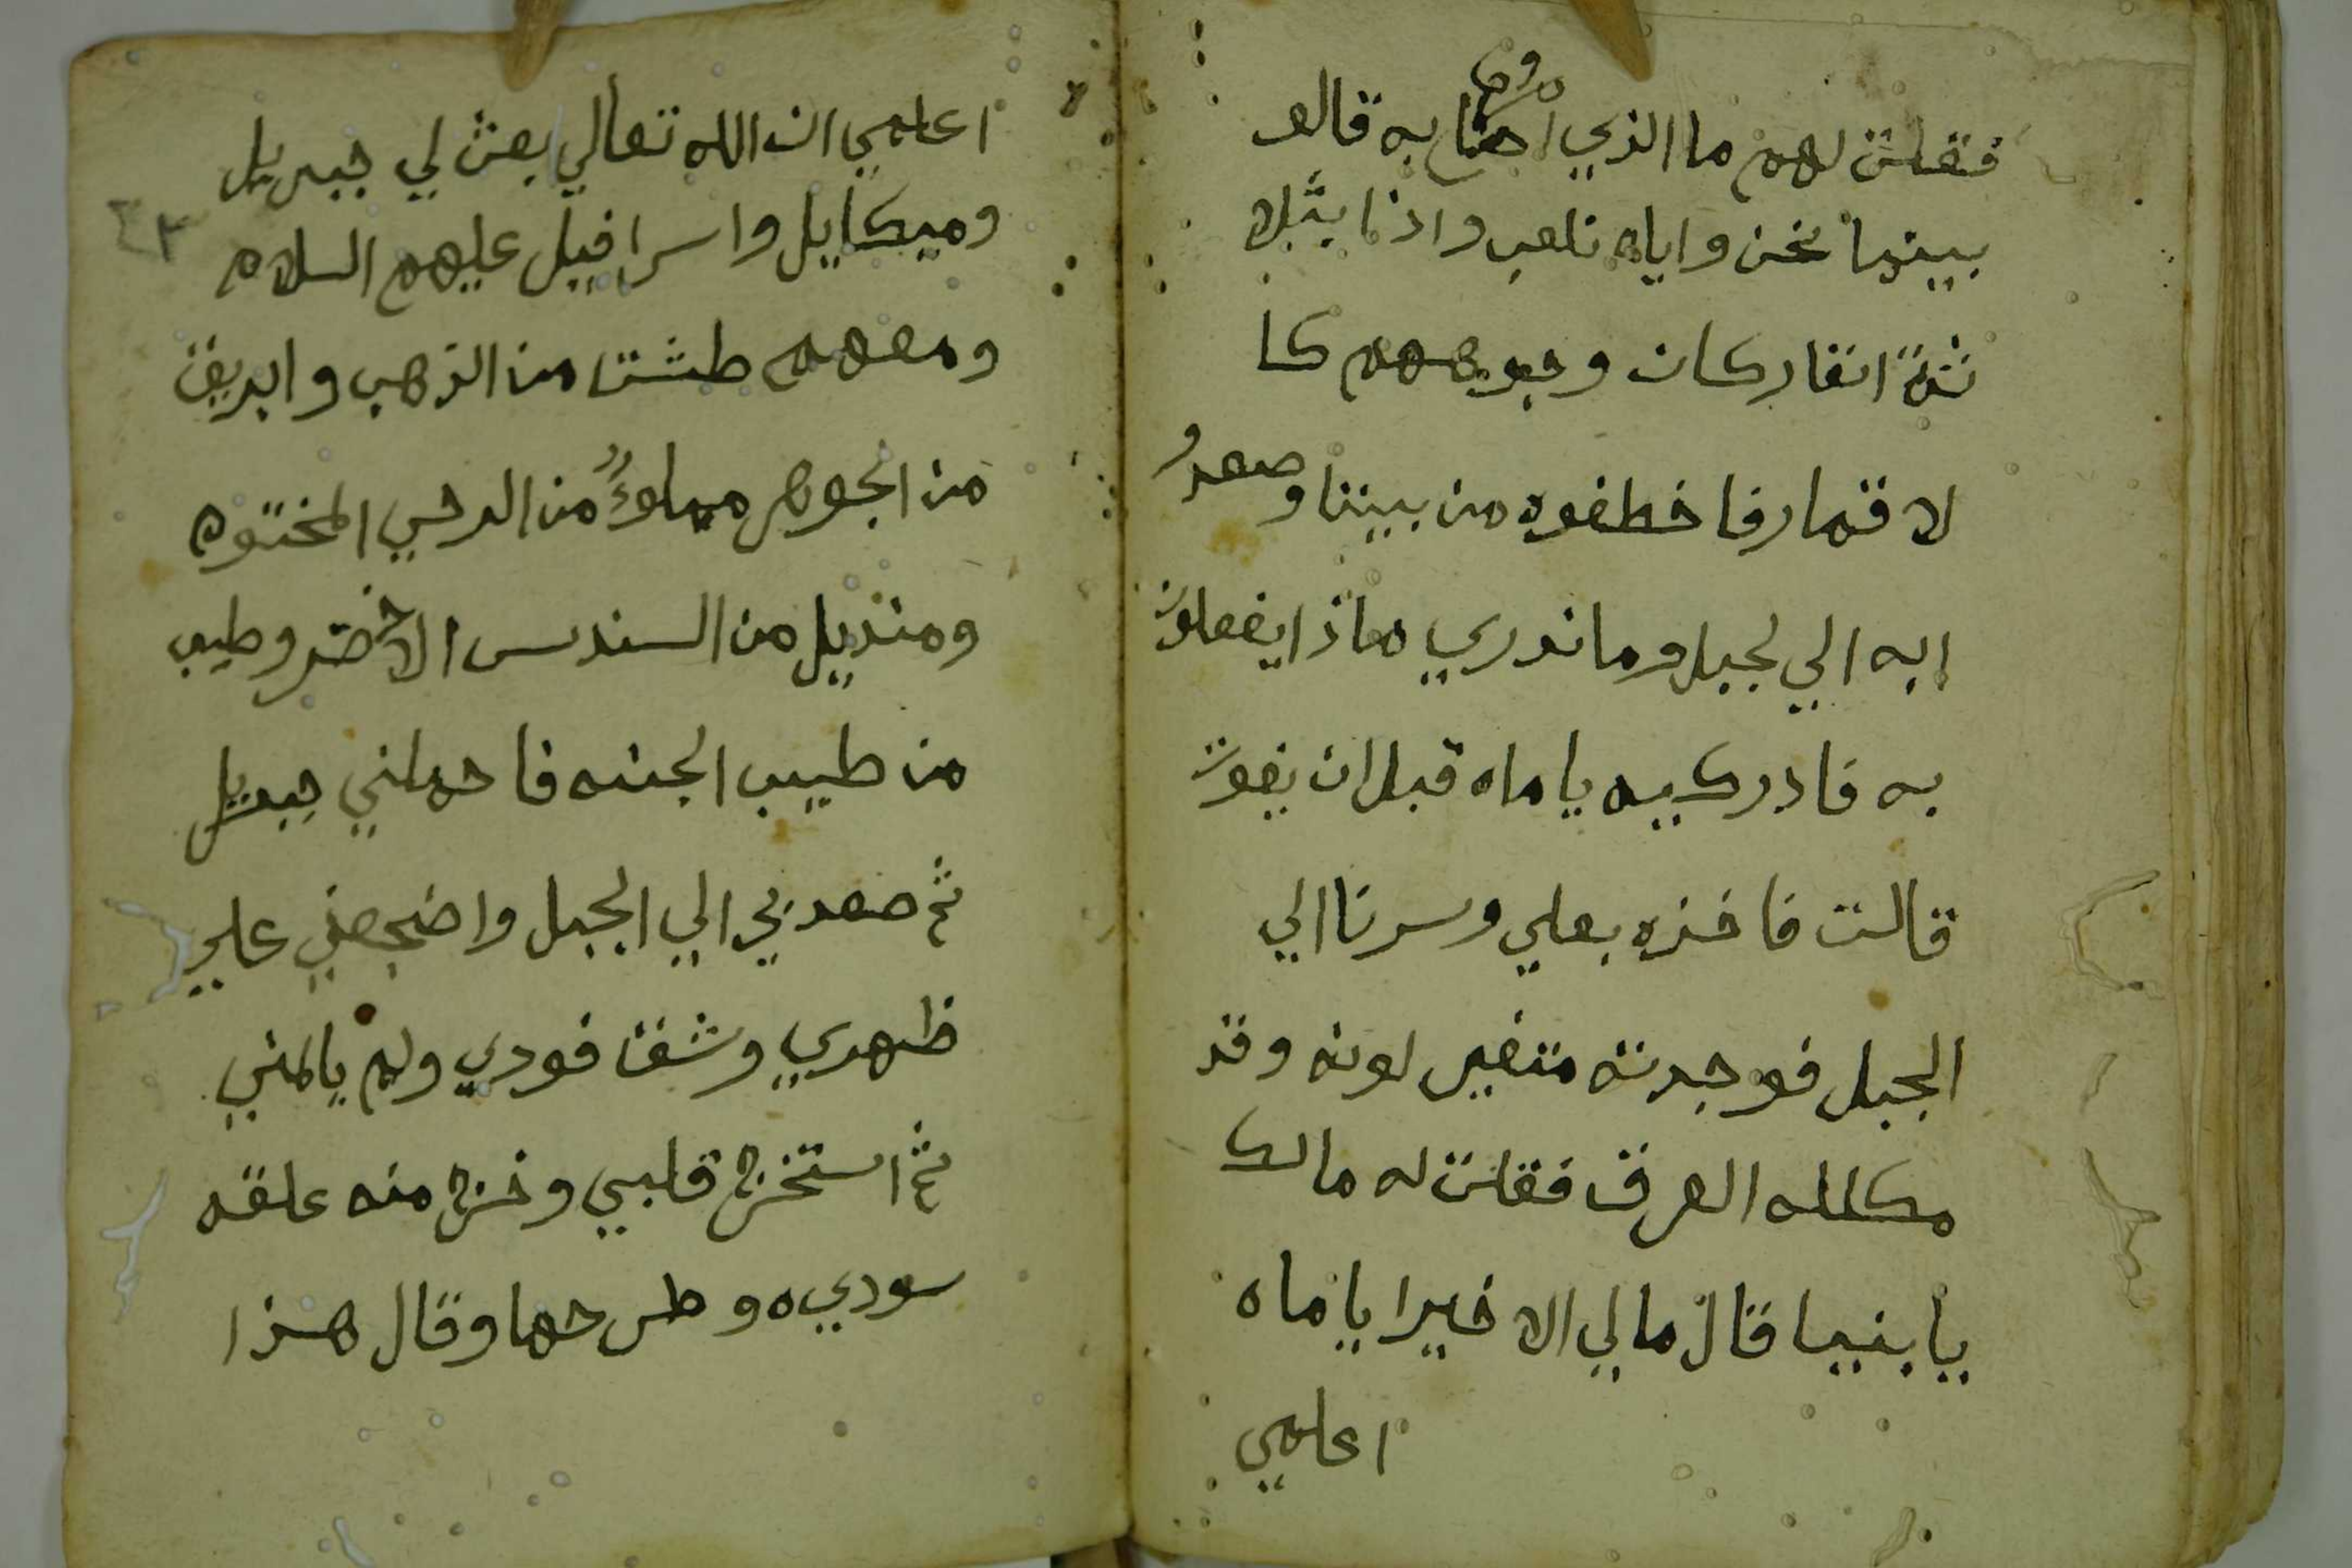 فقلت لهم ما الذي اصابه قالو
بينما نحن واياه نلعب واذا بثلا
ثةً انفاركان وجوههم كا
لاقمارفا خطفوه من بيننا وصعدو
ابه الي لجبل وما ندري ماذا يفعلون
به فادركيه يا ماه قبل ان يفوت
قالت فاخذه بعلي وسرنا الي
الجبل فوجدته متغير لونه وقد
مكلله العرق فقلت له مالك
يا بنيا قال مالي الا خيرا ياماه
اعلمي
اعلمي ان الله تعالي بعث لي جبريل
وميكايل واسرافيل عليهم السلام
٤٢
ومعهم طشت من الذهب وابريق
من الجوهر مملوءً من الرحي المختوم
ومنديل من السندس الاخضر وطيب
من طيب الجنه فاحملني جبريل
ثم صعد بي الي الجبل واضجعني علي
ظهري وشق فودي ولم يالمني
ثم استخرج قلبي وخرج منه علقه
سوديه وطرحها وقال هذا